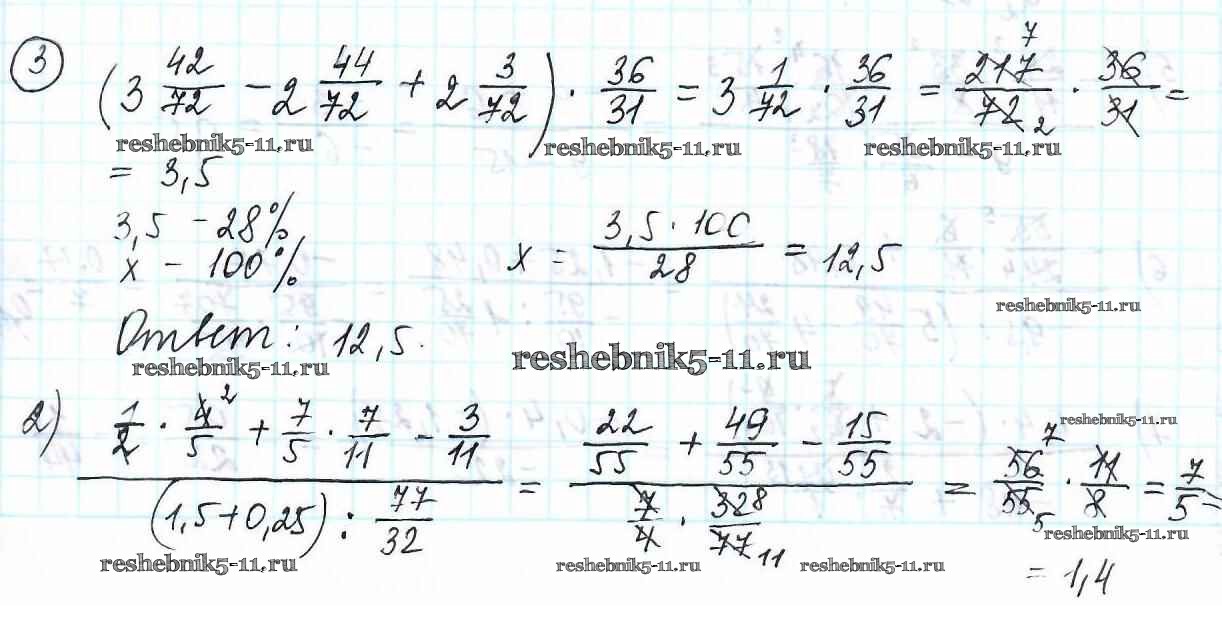 3 (3 42/72 - 2 44/72 + 2 3/72) · 36/31 = 3 1/72 · 36/31 = 217 7/72 2 · 36/31 =
reshebnik5-11.ru reshebnik5-11.ru reshebnik5-11.ru
= 3,5
3,5 - 28%
x - 100% x = 3,5 · 100/28 = 12,5
reshebnik5-11.ru
Ответ: 12,5.
reshebnik5-11.ru reshebnik5-11.ru
2) (1/2 · 4 2/5 + 7/5 · 7/11 - 3/11)/((1,5+0,25) : 77/32) = (22/55 + 49/55 - 15/55)/(7/4 · 32 8/77 11) = 56 7/55 5 · 11/8 = 7/5 =
reshebnik5-11.ru
reshebnik5-11.ru
reshebnik5-11.ru reshebnik5-11.ru reshebnik5-11.ru
= 1,4